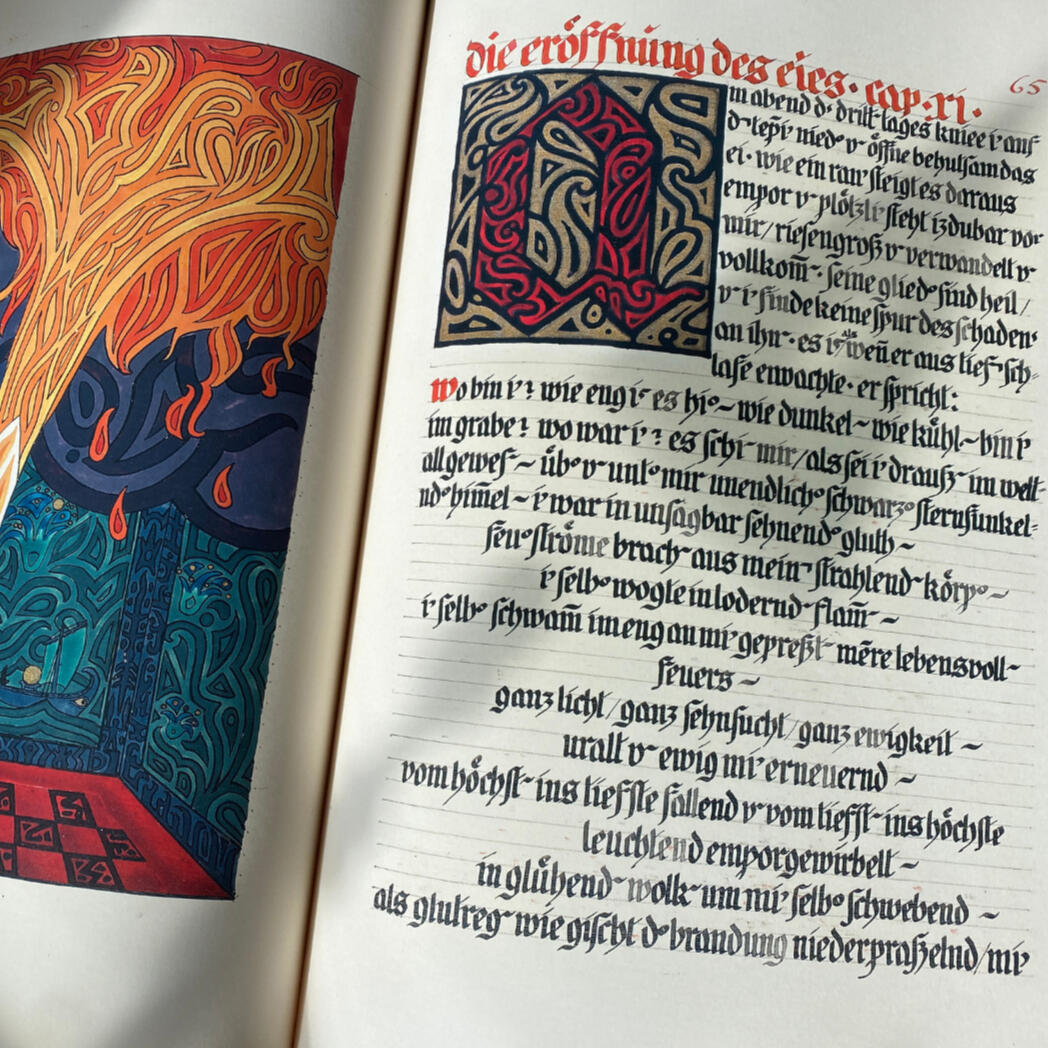 die eröffnung des eies. cap. xi.
65
Am abend d' dritt' tages kniee i' auf
d' tepi' nied' v' öffne behutsam das
ei. wie ein rau' steigt es daraus
empor v' plötzli' steht izdubar vor
mir/ riesengroß v' verwandelt v'
vollkom̄'. seine glied' sind heil/
v' i' finde keine spur des schadens
an ihn'. es i' als wen̄ er aus tief' sch-
lafe erwachte. er spricht:
wo bin i'? wie eng i' es hi' ~ wie dunkel ~ wie kühl ~ bin i'
im grabe? wo war i'? es schi' mir/ als sei i' drauß' im welt-
all gewes' ~ üb' v' unt' mir unendlich' schwarz' sternfunkel-
nd' him̄el ~ i' war in unsagbar sehnend' gluth ~
feu' ströme brach' aus mein' strahlend' körp' ~
i' selb' wogte in lodernd' flam̄' ~
i' selb' schwam̄ in eng an mi' gepreßt' mēre lebensvoll'
feuers ~
ganz licht/ ganz sehnsucht/ ganz ewigkeit ~
uralt v' ewig mi' erneuernd ~
vom höchst' ins tiefste fallend v' vom tiefst' ins höchste
leuchtend emporgewirbelt ~
in glühend' wolk' um mi' selb' schwebend ~
als glutreg' wie gischt d' brandung niederpraßelnd/ mi'